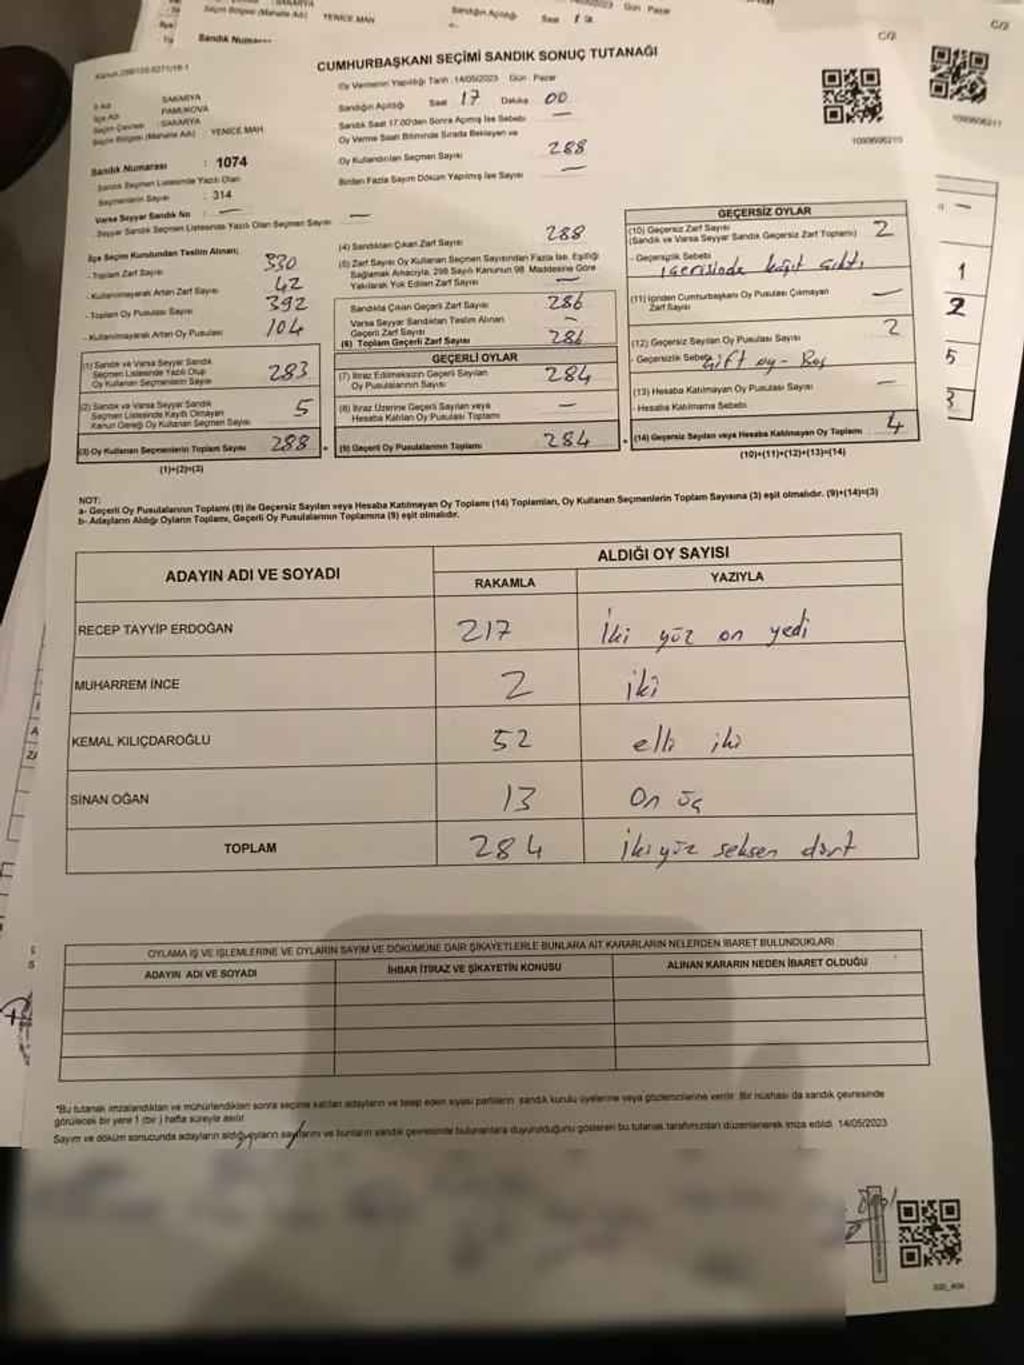 YENİCE MAH
Sandık Numarası
C/2
C/2
CUMHURBAŞKANI SEÇİMİ SANDIK SONUÇ TUTANAĞI
Oy Vermenin Yapıldığı Tarih : 14/05/2023 Gün : Pazar
İl Adı : SAKARYA
İlçe Adı : PAMUKOVA
Seçim Çevresi : SAKARYA
Seçim Bölgesi (Mahalle Adı) : YENİCE MAH.
Sandık Numarası : 1074
Sandık Seçmen Listesinde Yazılı Olan
Seçmenlerin Sayısı : 314
Varsa Seyyar Sandık No : —
Seyyar Sandık Seçmen Listesinde Yazılı Olan Seçmen Sayısı —
Sandığın Açıldığı Saat 17 Dakika 00
Sandık Saat 17.00'den Sonra Açılmış İse Sebebi —
Oy Verme Saati Bitiminde Sırada Bekleyen ve
Oy Kullandırılan Seçmen Sayısı 288
Birden Fazla Sayım Döküm Yapılmış İse Sayısı —
İlçe Seçim Kurulundan Teslim Alınan;
- Toplam Zarf Sayısı 330
- Kullanılmayarak Artan Zarf Sayısı 42
- Toplam Oy Pusulası Sayısı 392
- Kullanılmayarak Artan Oy Pusulası 104
(1) Sandık ve Varsa Seyyar Sandık
Seçmen Listesinde Yazılı Olup
Oy Kullanan Seçmenlerin Sayısı 283
(2) Sandık ve Varsa Seyyar Sandık
Seçmen Listesinde Kayıtlı Olmayan
Kanun Gereği Oy Kullanan Seçmen Sayısı 5
(3) Oy Kullanan Seçmenlerin Toplam Sayısı 288
(1)+(2)=(3)
(4) Sandıktan Çıkan Zarf Sayısı 288
(5) Zarf Sayısı Oy Kullanan Seçmen Sayısından Fazla İse, Eşitliği
Sağlamak Amacıyla, 298 Sayılı Kanunun 98. Maddesine Göre
Yakılarak Yok Edilen Zarf Sayısı —
Sandıkta Çıkan Geçerli Zarf Sayısı 286
Varsa Seyyar Sandıktan Teslim Alınan
Geçerli Zarf Sayısı —
(6) Toplam Geçerli Zarf Sayısı 286
GEÇERLİ OYLAR
(7) İtiraz Edilmeksizin Geçerli Sayılan
Oy Pusulalarının Sayısı 284
(8) İtiraz Üzerine Geçerli Sayılan veya
Hesaba Katılan Oy Pusulası Toplamı —
(9) Geçerli Oy Pusulalarının Toplamı 284
GEÇERSİZ OYLAR
(10) Geçersiz Zarf Sayısı 2
(Sandık ve Varsa Seyyar Sandık Geçersiz Zarf Toplamı)
- Geçersizlik Sebebi
içerisinde kağıt çıktı
(11) İçinden Cumhurbaşkanı Oy Pusulası Çıkmayan
Zarf Sayısı —
(12) Geçersiz Sayılan Oy Pusulası Sayısı 2
- Geçersizlik Sebebi Çift oy - Boş
(13) Hesaba Katılmayan Oy Pusulası Sayısı —
- Hesaba Katılmama Sebebi
(14) Geçersiz Sayılan veya Hesaba Katılmayan Oy Toplamı 4
(10)+(11)+(12)+(13)=(14)
1
2
5
3
NOT:
a- Geçerli Oy Pusulalarının Toplamı (9) ile Geçersiz Sayılan veya Hesaba Katılmayan Oy Toplamı (14) Toplamları, Oy Kullanan Seçmenlerin Toplam Sayısına (3) eşit olmalıdır. (9)+(14)=(3)
b- Adayların Aldığı Oyların Toplamı, Geçerli Oy Pusulalarının Toplamına (9) eşit olmalıdır.
ADAYIN ADI VE SOYADI
ALDIĞI OY SAYISI
RAKAMLA YAZIYLA
RECEP TAYYİP ERDOĞAN 217 İki yüz on yedi
MUHARREM İNCE 2 iki
KEMAL KILIÇDAROĞLU 52 elli iki
SİNAN OĞAN 13 On üç
TOPLAM 284 İki yüz seksen dört
OYLAMA İŞ VE İŞLEMLERİNE VE OYLARIN SAYIM VE DÖKÜMÜNE DAİR ŞİKAYETLERLE BUNLARA AİT KARARLARIN NELERDEN İBARET BULUNDUKLARI
ADAYIN ADI VE SOYADI İHBAR İTİRAZ VE ŞİKAYETİN KONUSU ALINAN KARARIN NEDEN İBARET OLDUĞU
*Bu tutanak imzalandıktan ve mühürlendikten sonra seçime katılan adayların ve talep eden siyasi partilerin sandık kurulu üyelerine veya gözlemcilerine verilir. Bir nüshası da sandık çevresinde
görülecek bir yere 1 (bir) hafta süreyle asılır.
Sayım ve döküm sonucunda adayların aldığı oyların sayılarını ve bunların sandık çevresinde bulunanlara duyurulduğunu gösteren bu tutanak tarafımızdan düzenlenerek imza edildi. 14/05/2023